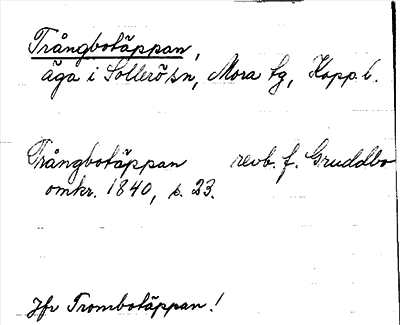 Trångbotäppan,
äga i Sollerö sn, Mora tg, Kopp. l.
Trångbotäppan revb. f. Gruddbo
omkr. 1840, s. 23.
Jfr Trombotäppan!